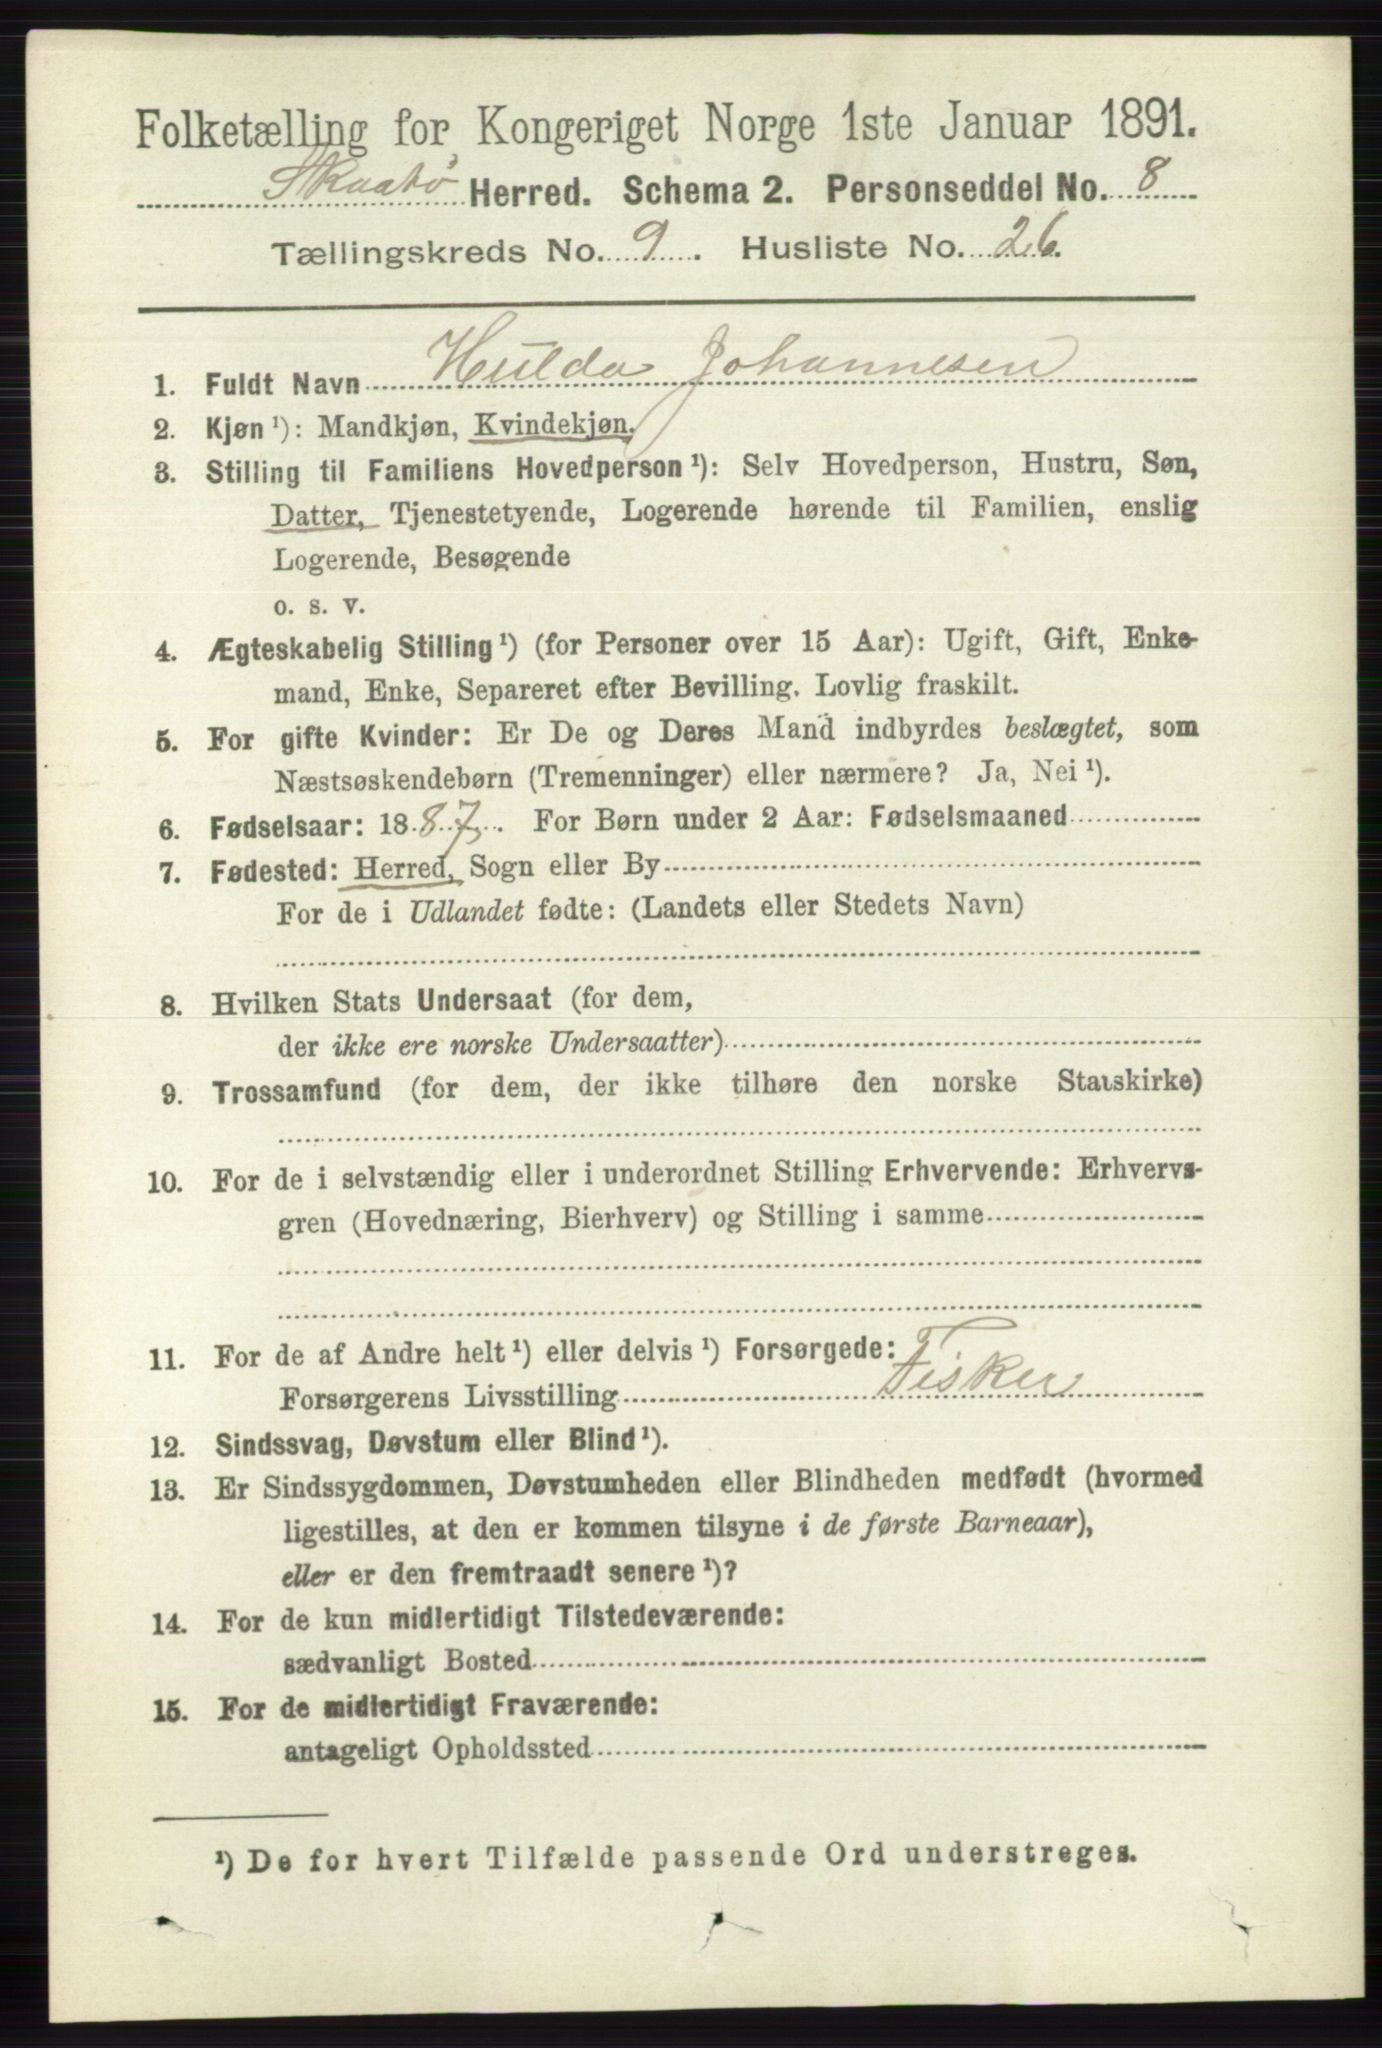 Folketælling for Kongeriget Norge 1ste Januar 1891.
Skaatø Herred. Schema 2. Personseddel No. 8
Tællingskreds No. 9. Husliste No. 26.
1. Fuldt Navn Hulda Johannesen
2. Kjøn ¹): Mandkjøn, Kvindekjøn.
3. Stilling til Familiens Hovedperson ¹): Selv Hovedperson, Hustru, Søn,
Datter, Tjenestetyende, Logerende hørende til Familien, enslig
Logerende, Besøgende
o. s. v.
4. Ægteskabelig Stilling ¹) (for Personer over 15 Aar): Ugift, Gift, Enke-
mand, Enke, Separeret efter Bevilling. Lovlig fraskilt.
5. For gifte Kvinder: Er De og Deres Mand indbyrdes beslægtet, som
Næstsøskendebørn (Tremenninger) eller nærmere? Ja, Nei ¹).
6. Fødselsaar: 1887. For Børn under 2 Aar: Fødselsmaaned
7. Fødested: Herred, Sogn eller By
For de i Udlandet fødte: (Landets eller Stedets Navn)
8. Hvilken Stats Undersaat (for dem,
der ikke ere norske Undersaatter)
9. Trossamfund (for dem, der ikke tilhøre den norske Statskirke)
10. For de i selvstændig eller i underordnet Stilling Erhvervende: Erhvervs-
gren (Hovednæring, Bierhverv) og Stilling i samme
11. For de af Andre helt ¹) eller delvis ¹) Forsørgede:
Forsørgerens Livsstilling Fisker
12. Sindssvag, Døvstum eller Blind ¹).
13. Er Sindssygdommen, Døvstumheden eller Blindheden medfødt (hvormed
ligestilles, at den er kommen tilsyne i de første Barneaar),
eller er den fremtraadt senere ¹)?
14. For de kun midlertidigt Tilstedeværende:
sædvanligt Bosted
15. For de midlertidigt Fraværende:
antageligt Opholdssted
¹) De for hvert Tilfælde passende Ord understreges.